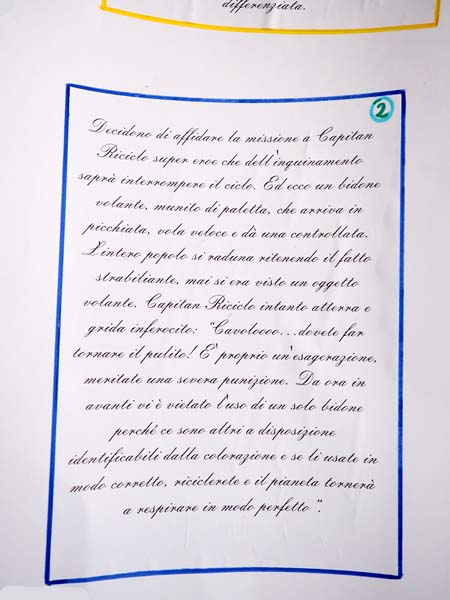 differenziata.
2
Decidono di affidare la missione a Capitan
Riciclo super eroe che dell'inquinamento
saprà interrompere il ciclo. Ed ecco un bidone
volante, munito di paletta, che arriva in
picchiata, vola veloce e dà una controllata.
L'intero popolo si raduna ritenendo il fatto
strabiliante, mai si era visto un oggetto
volante. Capitan Riciclo intanto atterra e
grida inferocito: "Cavoloooo...dovete far
tornare il pulito! E' proprio un'esagerazione,
meritate una severa punizione. Da ora in
avanti vi è vietato l'uso di un solo bidone
perché ce sono altri a disposizione
identificabili dalla colorazione e se li usate in
modo corretto, riciclerete e il pianeta tornerà
a respirare in modo perfetto".